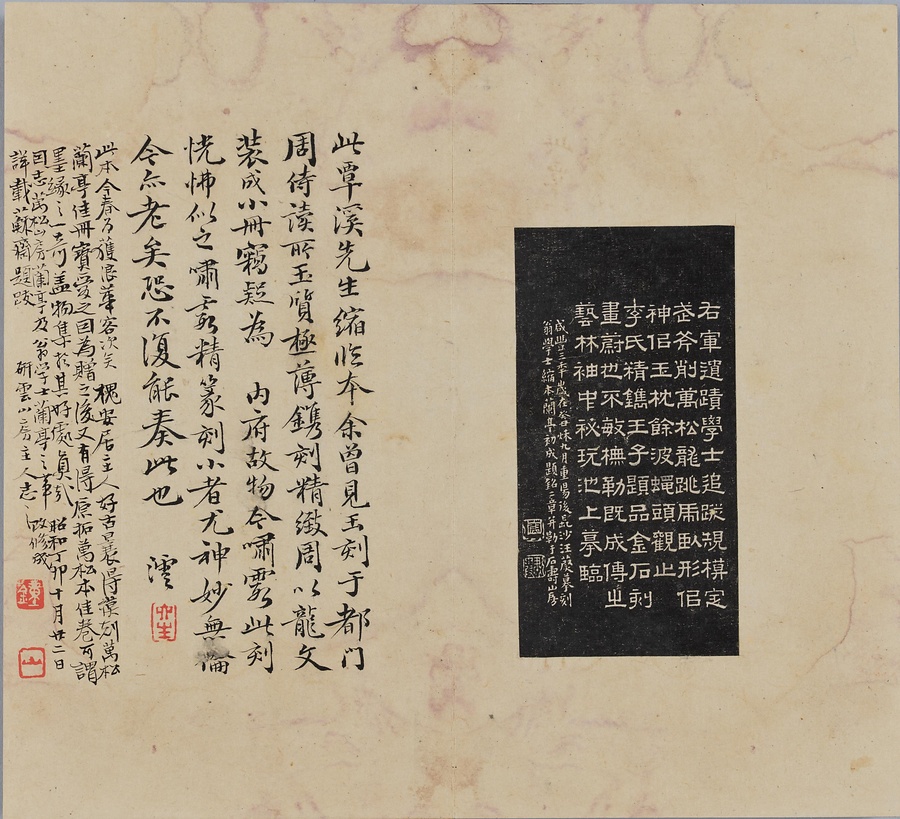 右軍遺蹟學士追踪規模定
武斧削萬松龍跳虎臥形侶
神侶玉枕餘波蠅頭觀止
李氏精鐫王子題品金石刻
畫蔚也不敏橅勒既成傳之
藝林袖中秘玩池上摹臨
咸豐三年歲在癸丑秣九月重陽後長沙汪蔚摹刻
翁學士縮本蘭亭初成題銘二章并勒于石壽山房
此覃溪先生縮臨本余曾見玉刻于都門
周侍讀所玉質極薄鐫刻精緻周以龍文
裝成小冊竊疑為 內府故物今嘯雲此刻
恍惚似之嘯雲精篆刻小者尤神妙無倫
今亦老矣恐不復能奏此也
此本今春乃獲浪華客次矣 槐安居主人好古曩得漢刻萬松
蘭亭佳冊寶愛之因為贈之後又有得原拓萬松本佳卷可謂
墨緣之一奇蓋物集於其好處負哉 昭和丁卯十月廿二日
因志萬松山房蘭亭及翁學士蘭亭之革改修成
詳載蘇齋題跋 研雲山房主人志